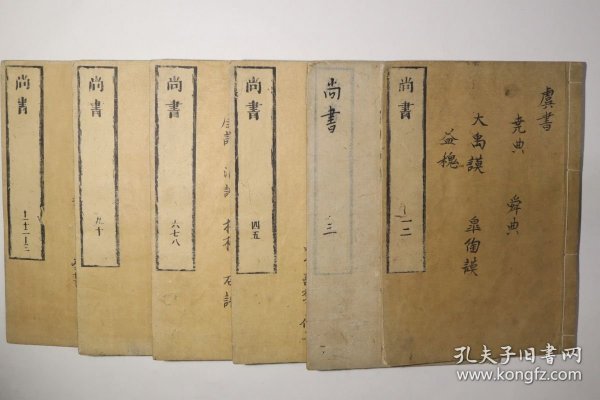 虞書
堯典 舜典
大禹謨 皋陶謨
益稷
尚書
一二
尚書
三
尚書
四五
尚書
六七八
尚書
九十
尚書
孔夫子旧书网
www.kongfz.com